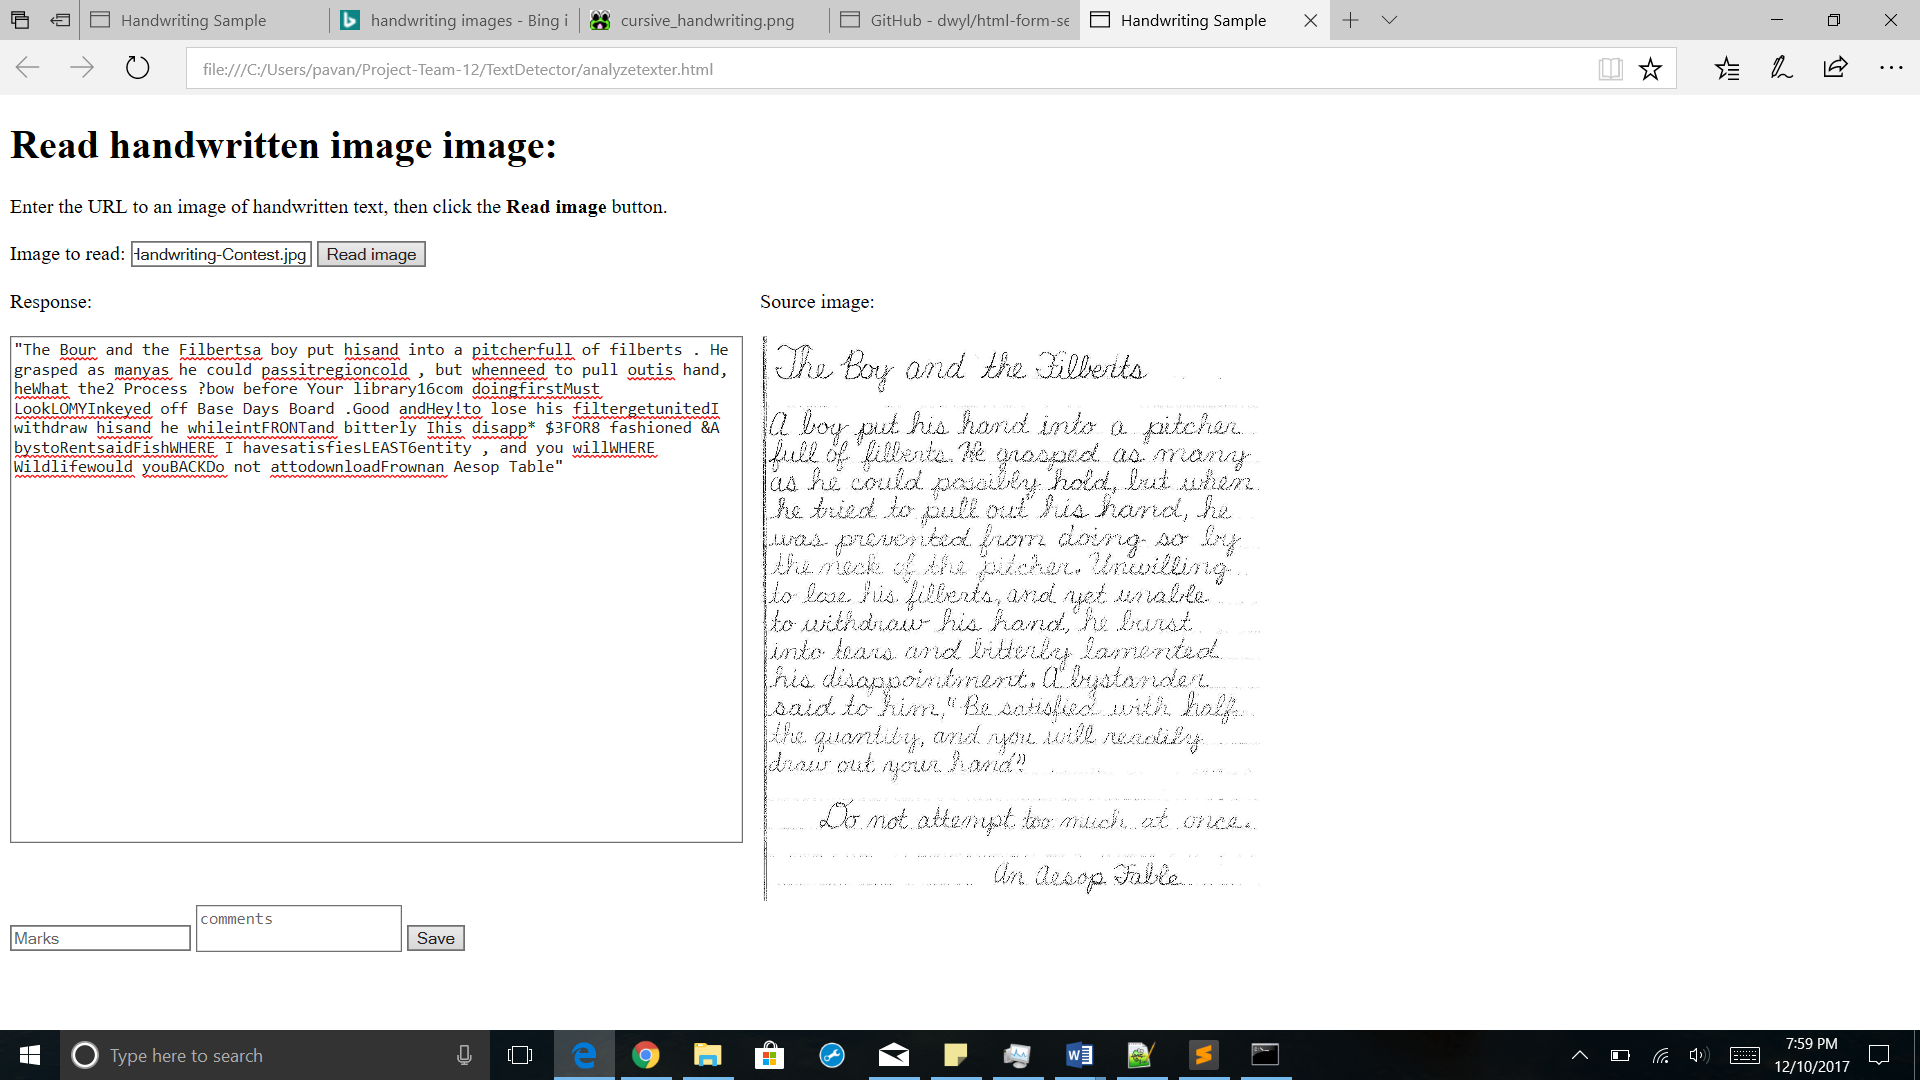 Handwriting Sample
handwriting images - Bing i
cursive_handwriting.png
GitHub - dwyl/html-form-se
Handwriting Sample
file:///C:/Users/pavan/Project-Team-12/TextDetector/analyzetexter.html
Read handwritten image image:
Enter the URL to an image of handwritten text, then click the Read image button.
Image to read: Handwriting-Contest.jpg Read image
Response:
"The Bour and the Filbertsa boy put hisand into a pitcherfull of filberts . He
grasped as manyas he could passitregioncold , but whenneed to pull outis hand,
heWhat the2 Process ?bow before Your library16com doingfirstMust
LookLOMYInkeyed off Base Days Board .Good andHey!to lose his filtergetunitedI
withdraw hisand he whileintFRONTand bitterly Ihis disapp* $3FOR8 fashioned &A
bystoRentsaidFishWHERE I havesatisfiesLEAST6entity , and you willWHERE
Wildlifewould youBACKDo not attodownloadFrownan Aesop Table"
Source image:
The Boy and the Filberts
A boy put his hand into a pitcher
full of filberts. He grasped as many
as he could possibly hold, but when
he tried to pull out his hand, he
was prevented from doing so by
the neck of the pitcher. Unwilling
to lose his filberts, and yet unable
to withdraw his hand, he burst
into tears and bitterly lamented
his disappointment. A bystander
said to him, "Be satisfied with half
the quantity, and you will readily
draw out your hand."
Do not attempt too much at once.
An Aesop Fable
Marks
comments
Save
Type here to search
7:59 PM
12/10/2017